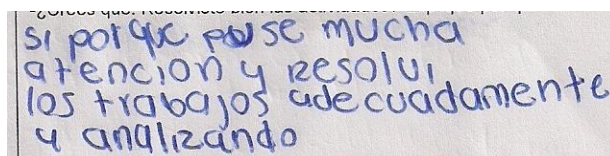 si porque puse mucha
atencion y resolvi
los trabajos adecuadamente
y analizando